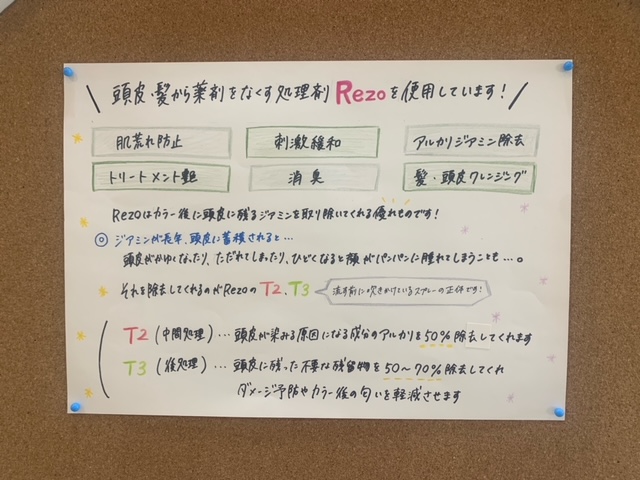 頭皮・髪から薬剤をなくす処理剤Rezoを使用しています！
肌荒れ防止 刺激緩和 アルカリジアミン除去
トリートメント艶 消臭 髪・頭皮クレンジング
Rezoはカラー後に頭皮に残るジアミンを取り除いてくれる優れものです！
◎ ジアミンが長年、頭皮に蓄積されると…
頭皮がかゆくなったり、ただれてしまったり、ひどくなると顔がパンパンに腫れてしまうことも…。
それを除去してくれるのがRezoのT2、T3 流す前に吹きかけているスプレーの正体です！
T2（中間処理）… 頭皮が染みる原因になる成分のアルカリを50%除去してくれます
T3（後処理）… 頭皮に残った不要な残留物を50～70%除去してくれ
ダメージ予防やカラー後の匂いを軽減させます